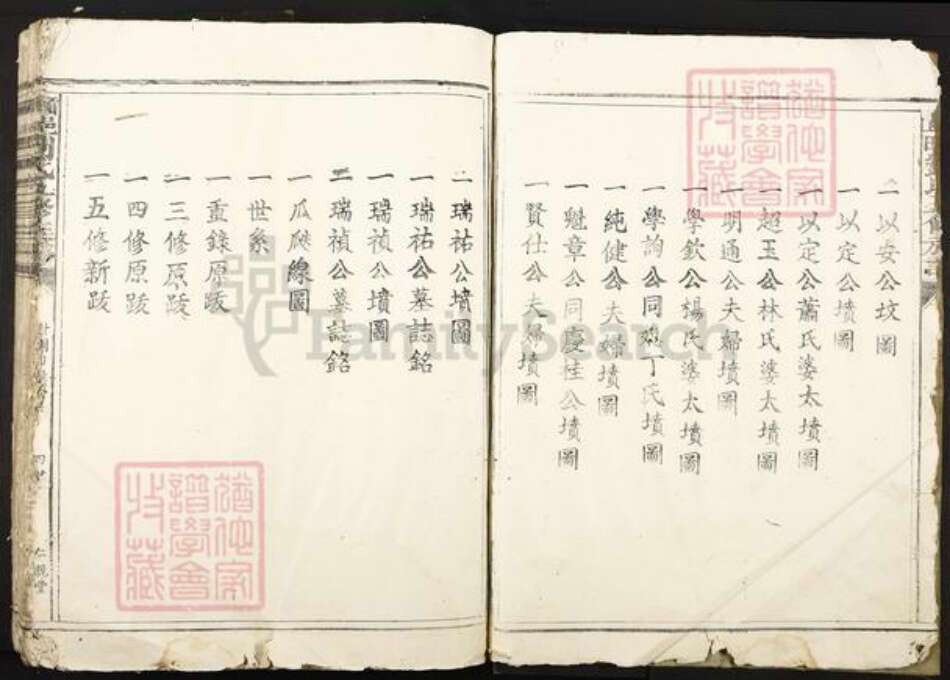 一以安公坟圖
一以定公墳圖
一以定公蕭氏婆太墳圖
一超玉公林氏婆太墳圖
一明通公夫婦墳圖
一學欽公楊氏婆太墳圖
一學詢公同丁氏墳圖
一純健公夫婦墳圖
一魁章公同慶桂公墳圖
一賢仕公夫婦墳圖
一瑞祐公墳圖
一瑞祐公墓誌銘
一瑞禎公墳圖
一瑞禎公墓誌銘
一瓜瓞線圖
一世系
一重錄原跋
一三修原跋
一四修原跋
一五修新跋
仁親堂
FamilySearch
譜學會
收藏
譜學會
收藏